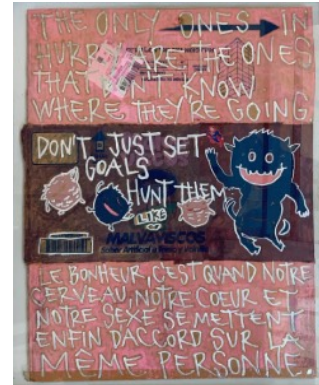 THE ONLY ONES IN
HURRY ARE THE ONES
THAT DON'T KNOW
WHERE THEY'RE GOING
DON'T JUST SET
GOALS
HUNT THEM
LIKE
MALVAVISCOS
Sabor Artificial a
LE BONHEUR, C'EST QUAND NOTRE
CERVEAU, NOTRE COEUR ET
NOTRE SEXE SE METTENT
ENFIN DACCORD SUR LA
MÊME PERSONNE